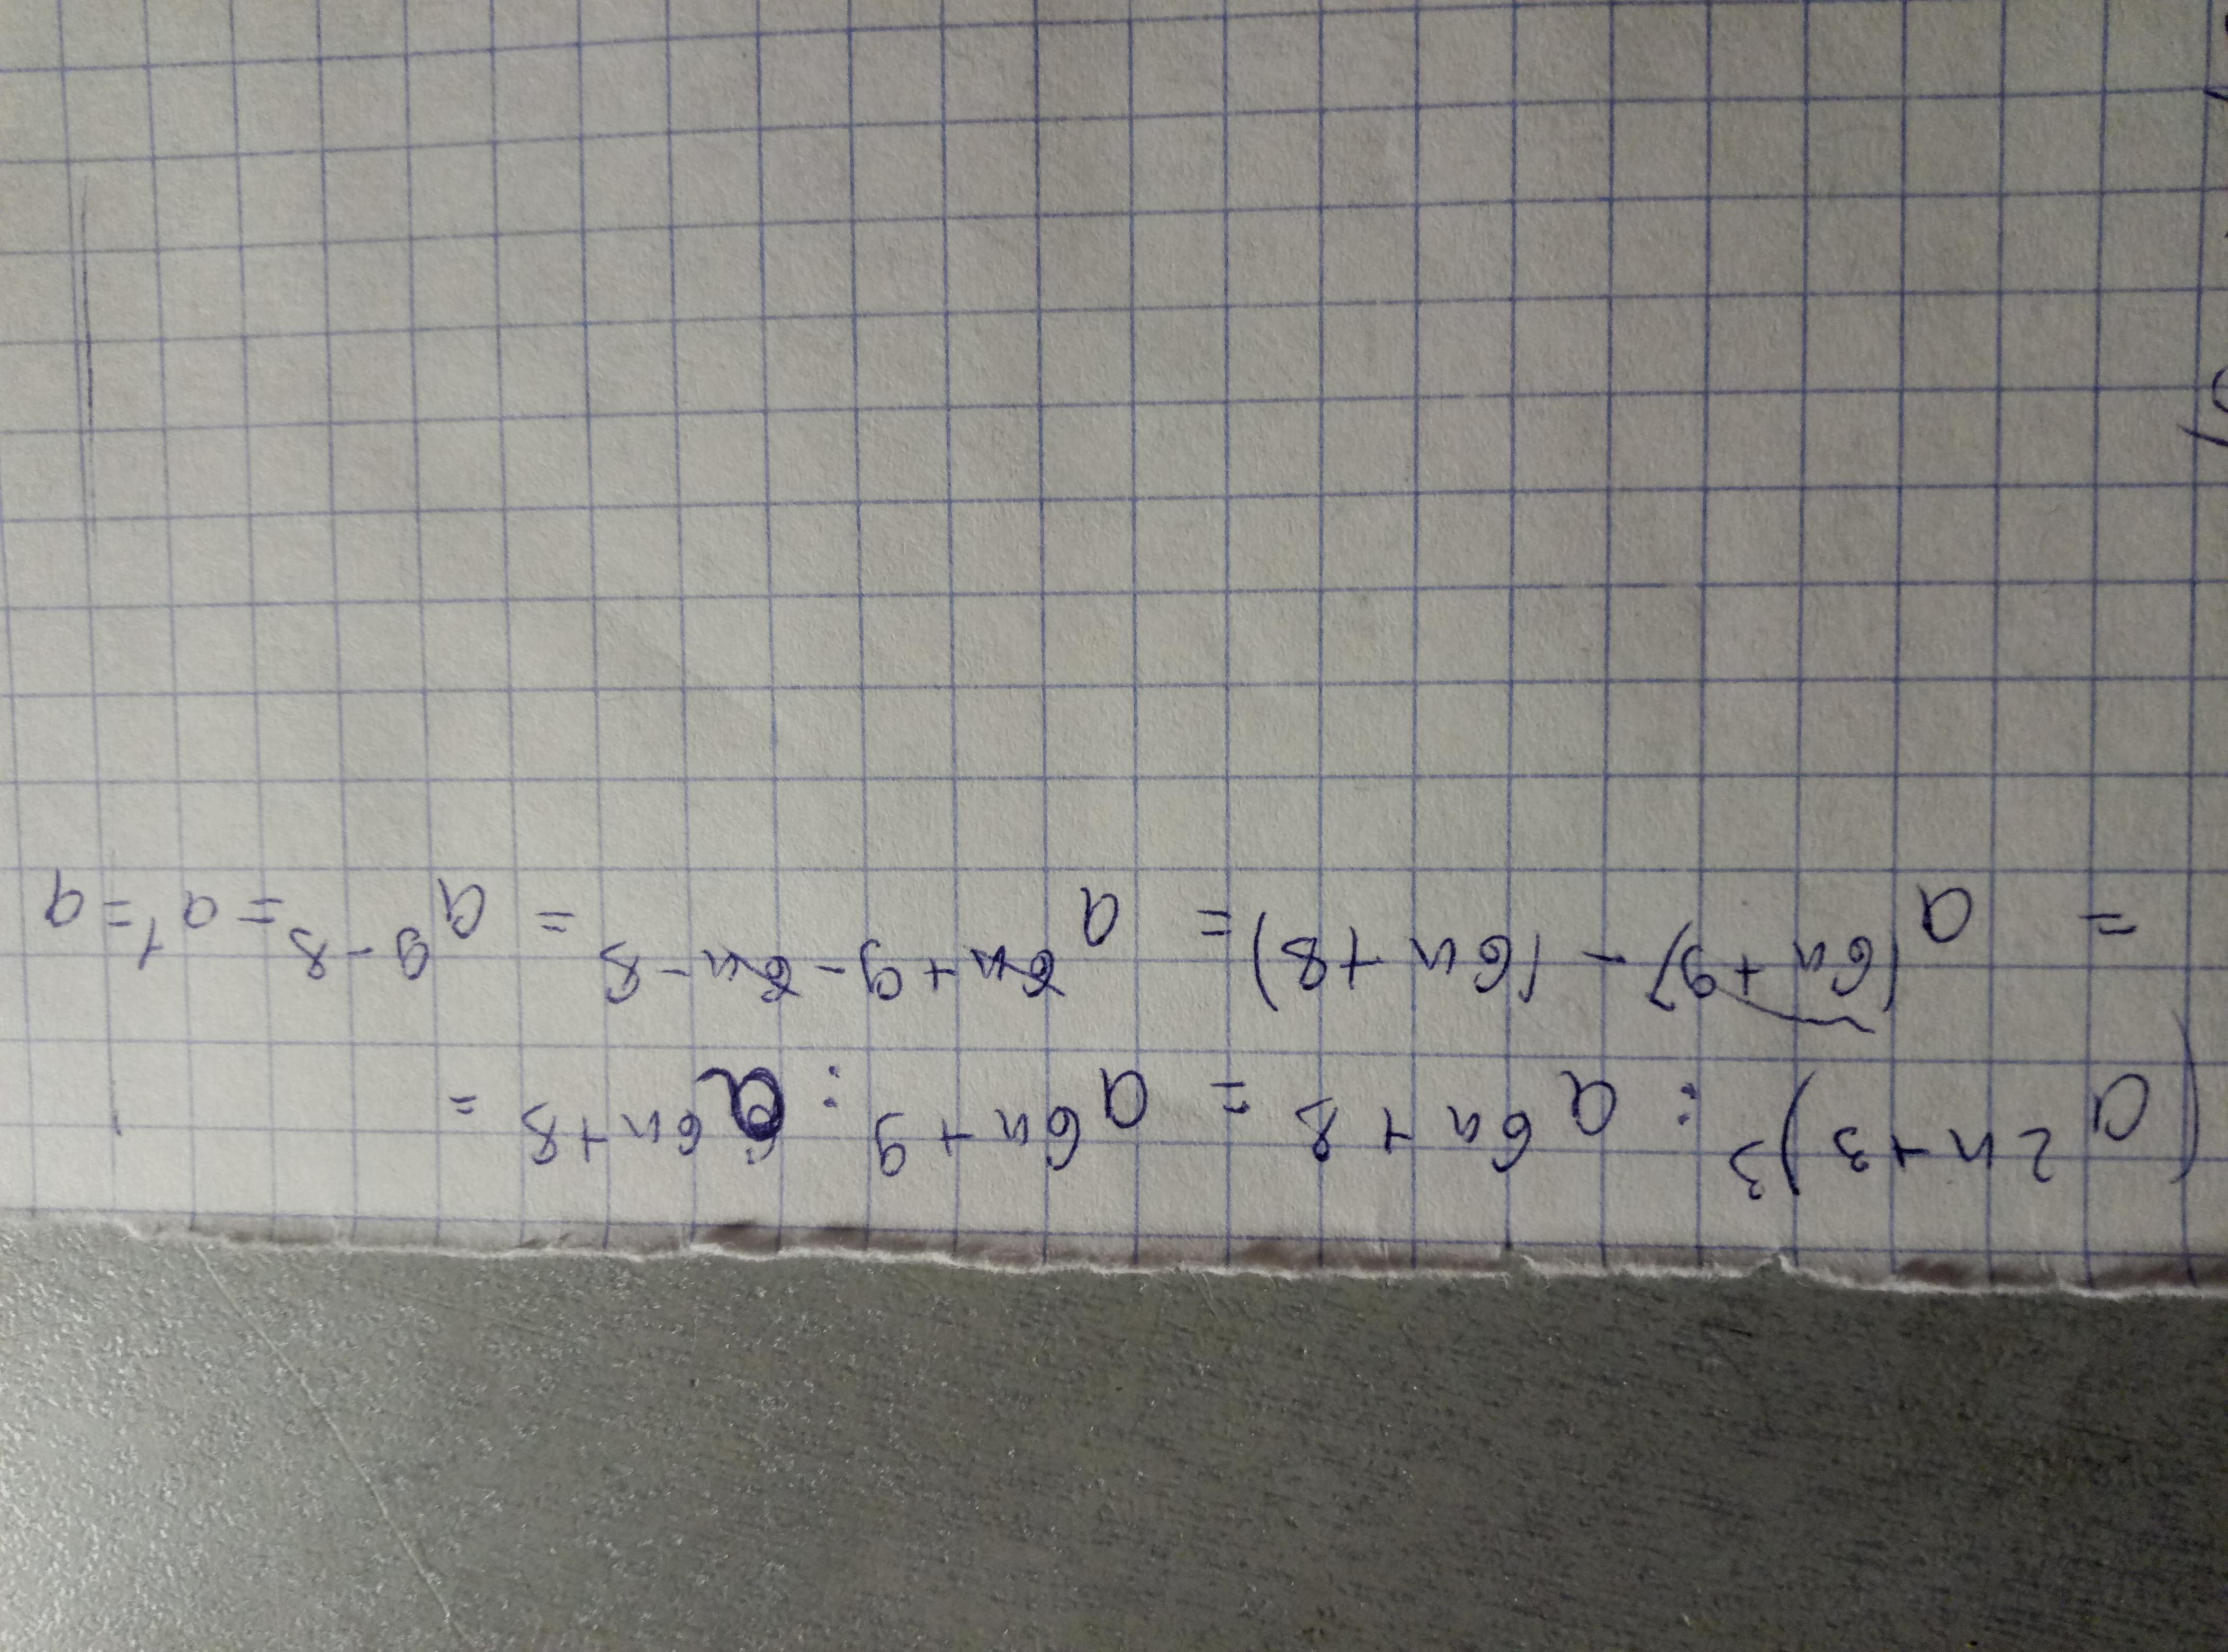 (a^{2n+3})^3 : a^{6n+8} = a^{6n+9} : a^{6n+8} =
= a^{(6n+9)-(6n+8)} = a^{6n+9-6n-8} = a^{9-8} = a^1 = a